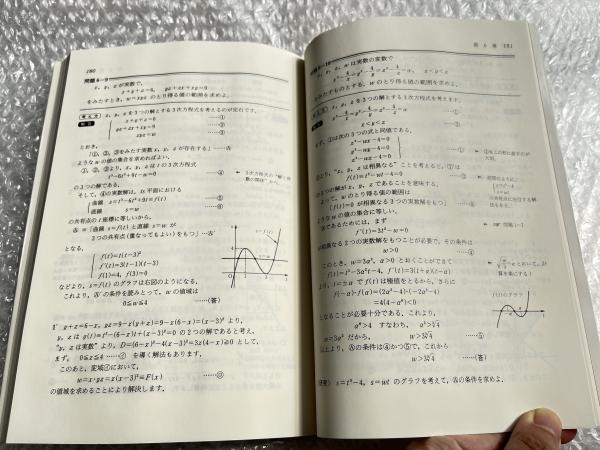 180
問題6-9
x, y, zが実数で,
x+y+z=6, yz+zx+xy=9
をみたすとき, w=xyz のとり得る値の範囲を求めよ.
考え方 x, y, zを3つの解とする3次方程式を考えるのが定石です.
解答
x+y+z=6 ……①
yz+zx+xy=9 ……②
xyz=w ……③
とおき,
「①, ②, ③をみたす実数 x, y, z が存在する」 ……Ⓐ
ようなwの値の集合を求めればよい.
①, ②, ③より, x, y, z は t の3次方程式
t³-6t²+9t-w=0 ……④
の3つの解である.
そして, ④の実数解は, ts平面における
曲線 s=t³-6t²+9t=f(t) ……⑤
直線 s=w ……⑥
の共有点の t 座標に等しいから,
Ⓐ⇔「曲線 s=f(t) と直線 s=w が
3つの共有点(重なってもよい)をもつ」
となる.
f(t)=t(t-3)²
f′(t)=3(t-1)(t-3)
f(1)=4, f(3)=0
などより, s=f(t) のグラフは右図のようになる.
これより, Ⓐ′の条件を読みとって, w の値域は
0≦w≦4 ……(答)
y+z=6-x, yz=9-x(y+z)=9-x(6-x)=(x-3)² より,
y, z は g(t)=t²-(6-x)t+(x-3)²=0 の2つの解であると考え,
"y, z は実数" より, D=(6-x)²-4(x-3)²=3x(4-x)≧0 として,
まず, 0≦x≦4 を導く解法もあります.
このあと, 定域において,
w=x·yz=x(x-3)²=F(x)
の値域を求めることにより解決します.
第6章 181
問題6-10
x, y, z, w は実数の実数で
をみたすものとする. w のとり得る値の範囲を求めよ.
考え方 x, y, z を3つの解とする3次方程式を考えます.
x<y<z ……②
まず, ①は次の3つの式と同値である.
x³-wx-4=0
y³-wy-4=0
z³-wz-4=0
②より, "x, y, z は相異なる" ことを考えると, ①は
f(t)=t³-wt-4=0
の3つの解が x, y, z であることを意味する.
よって, w のとり得る値の範囲は
「f(t)=0 が相異なる3つの実数解をもつ」 ……Ⓐ
ようなwの値の集合に等しい.
Ⓐであるためには, まず
f′(t)=3t²-w=0
が相異なる2つの実数解をもつことが必要で, その条件は
w>0 ……④
このとき, w=3α², α>0 とおくことができて
f(t)=t³-3α²t-4, f′(t)=3(t+α)(t-α)
より, t=±α で f(t) は極値をとるから, さらに
f(-α)·f(α)=(2α³-4)(-2α³-4)
=4(4-α⁶)<0
となることが必要十分である. これより,
α⁶>4 すなわち,
w=3α² だから, ……⑤
以上より, Ⓐの条件は④かつ⑤で, これから
……(答)
f(t)のグラフ
s=t³-4, s=wt のグラフを考えて, Ⓐの条件を求めよ.